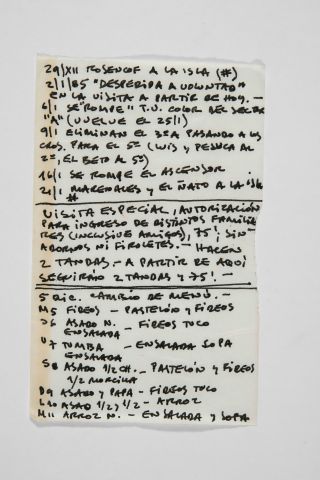 29/XII ROSENCOF A LA ISLA (#)
2/1/85 "DESPEDIDA A VOLUNTAD"
EN LA VISITA A PARTIR DE HOY. -
6/1 SE "ROMPE" T.V. COLOR DEL SECTOR
"A" (VUELVE EL 25/1)
9/1 ELIMINAN EL 3º A PASANDO A LOS
CROS. PARA EL 5º (LUIS Y PELUCA AL
2º, EL BETO AL 5º)
16/1 SE ROMPE EL ASCENSOR
21/1 MARENALES Y EL ÑATO A LA ISLA
#
VISITA ESPECIAL, AUTORIZACIÓN
PARA INGRESO DE DISTINTOS FAMILIA
RES (INCLUSIVE AMIGOS), 75', SIN
ADORNOS NI FIROLETES. - HACEN
2 TANDAS. - A PARTIR DE AQUÍ
SEGUIRÁN 2 TANDAS Y 75'. -
5 DIC. CAMBIO DE MENÚ. -
M5 FIDEOS - PASTELÓN Y FIDEOS
J6 ASADO N. - FIDEOS TUCO
ENSALADA
V7 TUMBA - ENSALADA SOPA
ENSALADA
S8 ASADO 1/2 CH. - PASTELÓN Y FIDEOS
1/2 MORCILLA
D9 ASADO Y PAPA - FIDEOS TUCO
L10 ASADO 1/2 Y 1/2 - ARROZ
M11 ARROZ N. - ENSALADA Y SOPA